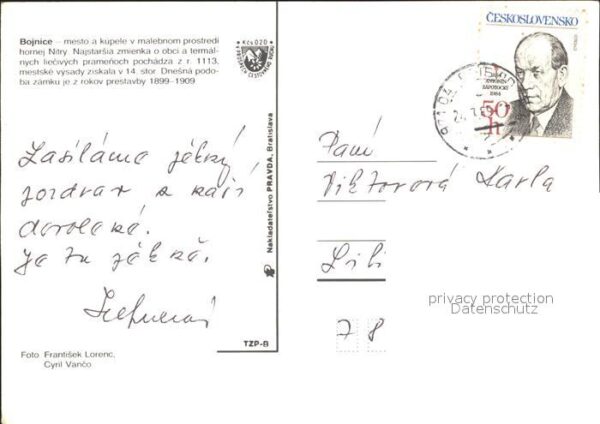 Bojnice – mesto a kúpele v malebnom prostredí
hornej Nitry. Najstaršia zmienka o obci a termál-
nych liečivých prameňoch pochádza z r. 1113,
mestské výsady získala v 14. stor. Dnešná podo-
ba zámku je z rokov prestavby 1899–1909
Kčs 0,20
ČESKOSLOVENSKO
1884
ANTONÍN
ZÁPOTOCKÝ
1984
50
h
Zasíláme pěkný
pozdrav z naší
dovolené.
Je tu pěkně.
Nakladateľstvo PRAVDA, Bratislava
TZP-B
Paní
Viktorová Karla
privacy protection
Datenschutz
7 8
Foto František Lorenc,
Cyril Vančo